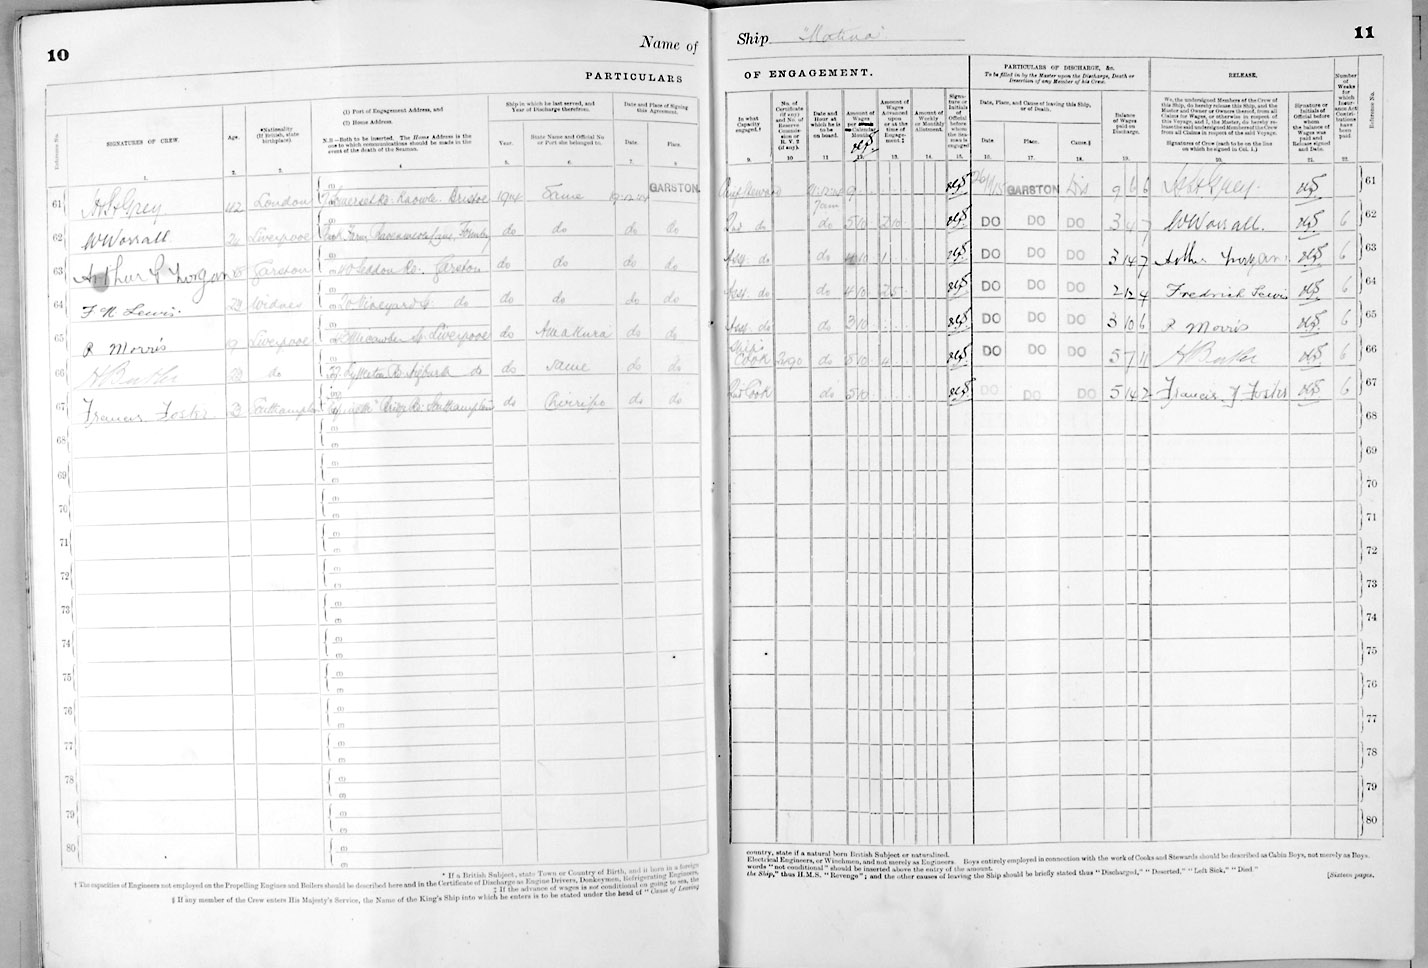 10
Name of
PARTICULARS
Reference No.
SIGNATURES OF CREW.
Age.
*Nationality
(If British, state
birthplace).
(1) Port of Engagement Address, and
(2) Home Address.
N.B.—Both to be inserted. The Home Address is the
one to which communications should be made in the
event of the death of the Seaman.
Ship in which he last served, and
Year of Discharge therefrom.
Year.
State Name and Official No
or Port she belonged to.
Date and Place of Signing
this Agreement.
Date.
Place.
1. 2. 3. 4 5. 6. 7. 8
61 A St Grey 42 London Bristol 1914 Same GARSTON
62 W Worrall Liverpool do do do do
63 Arthur Garston Garston do do do do
64 F N Lewis. 24 Widnes Vineyard St. do do do do do
65 R Morris 19 Liverpool Liverpool do do do
66 A Butler do do do same do do
67 Francis Foster Southampton Southampton do Chirripo do do
68
69
70
71
72
73
74
75
76
77
78
79
80
* If a British Subject, state Town or Country of Birth, and if born in a foreign
† The capacities of Engineers not employed on the Propelling Engines and Boilers should be described here and in the Certificate of Discharge as Engine Drivers, Donkeymen, Refrigerating Engineers,
‡ If the advance of wages is not conditional on going to sea, the
§ If any member of the Crew enters His Majesty's Service, the Name of the King's Ship into which he enters is to be stated under the head of "Causes of Leaving
Ship "Matina"
11
OF ENGAGEMENT.
PARTICULARS OF DISCHARGE, &c.
To be filled in by the Master upon the Discharge, Death or
Desertion of any Member of his Crew.
RELEASE.
In what
Capacity
engaged.†
No. of
Certificate
(if any)
and No. of
Reserve
Commis-
sion or
R. V. 2
(if any).
Date and
Hour at
which he is
to be
on board.
Amount of
Wages
per
Calendar
Month
Amount of
Wages
Advanced
upon
or at the
time of
Engage-
ment.‡
Amount of
Weekly
or Monthly
Allotment.
Signa-
ture or
Initials
of
Official
before
whom
the Sea-
man is
engaged
Date, Place, and Cause of leaving this Ship,
or of Death.
Date
Place.
Cause.§
Balance
of Wages
paid on
Discharge.
We, the undersigned Members of the Crew of
this Ship, do hereby release this Ship, and the
Master and Owner or Owners thereof, from all
Claims for Wages, or otherwise in respect of
this Voyage, and I, the Master, do hereby re-
lease the said undersigned Members of the Crew
from all Claims in respect of the said Voyage.
Signatures of Crew (each to be on the line
on which he signed in Col. 1.)
Signature or
Initials of
Official before
whom
the balance of
Wages was
paid and
Release signed
and Date.
Number
of
Weeks
for
which
Insur-
ance Act
Contri-
butions
have
been
paid
Reference No.
9. 10 11 12. 13. 14. 15. 16. 17. 18. 19. 20. 21. 22.
Chief Steward 7am 9 GARSTON Dis 9 6 6 A St Grey. 61
2nd do do 5 10 DO DO DO 3 4 7 W Worrall. 6 62
Asst. do do 1 DO DO DO 3 14 7 Arthur 6 63
Asst. do do 4 10 DO DO DO 2 12 4 Fredrick Lewis 6 64
Asst. do do 3 10 DO DO DO 3 10 6 R Morris 6 65
Ship's Cook do 4 DO DO DO 5 7 11 A Butler 6 66
2nd Cook do 5 10 DO DO DO 5 14 2 Francis J Foster 6 67
68
69
70
71
72
73
74
75
76
77
78
79
80
country, state if a natural born British Subject or naturalized.
Electrical Engineers, or Winchmen, and not merely as Engineers. Boys entirely employed in connection with the work of Cooks and Stewards should be described as Cabin Boys, not merely as Boys.
words "not conditional" should be inserted above the entry of the amount.
the Ship," thus H.M.S. "Revenge"; and the other causes of leaving the Ship should be briefly stated thus "Discharged," "Deserted," "Left Sick," "Died"
[Sixteen pages.